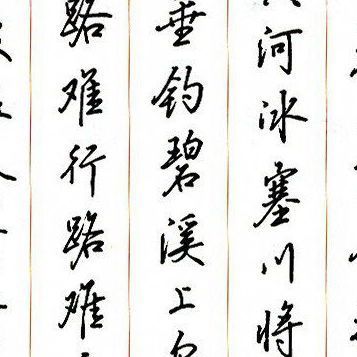 河冰塞川将
垂钓碧溪上
路难行路难